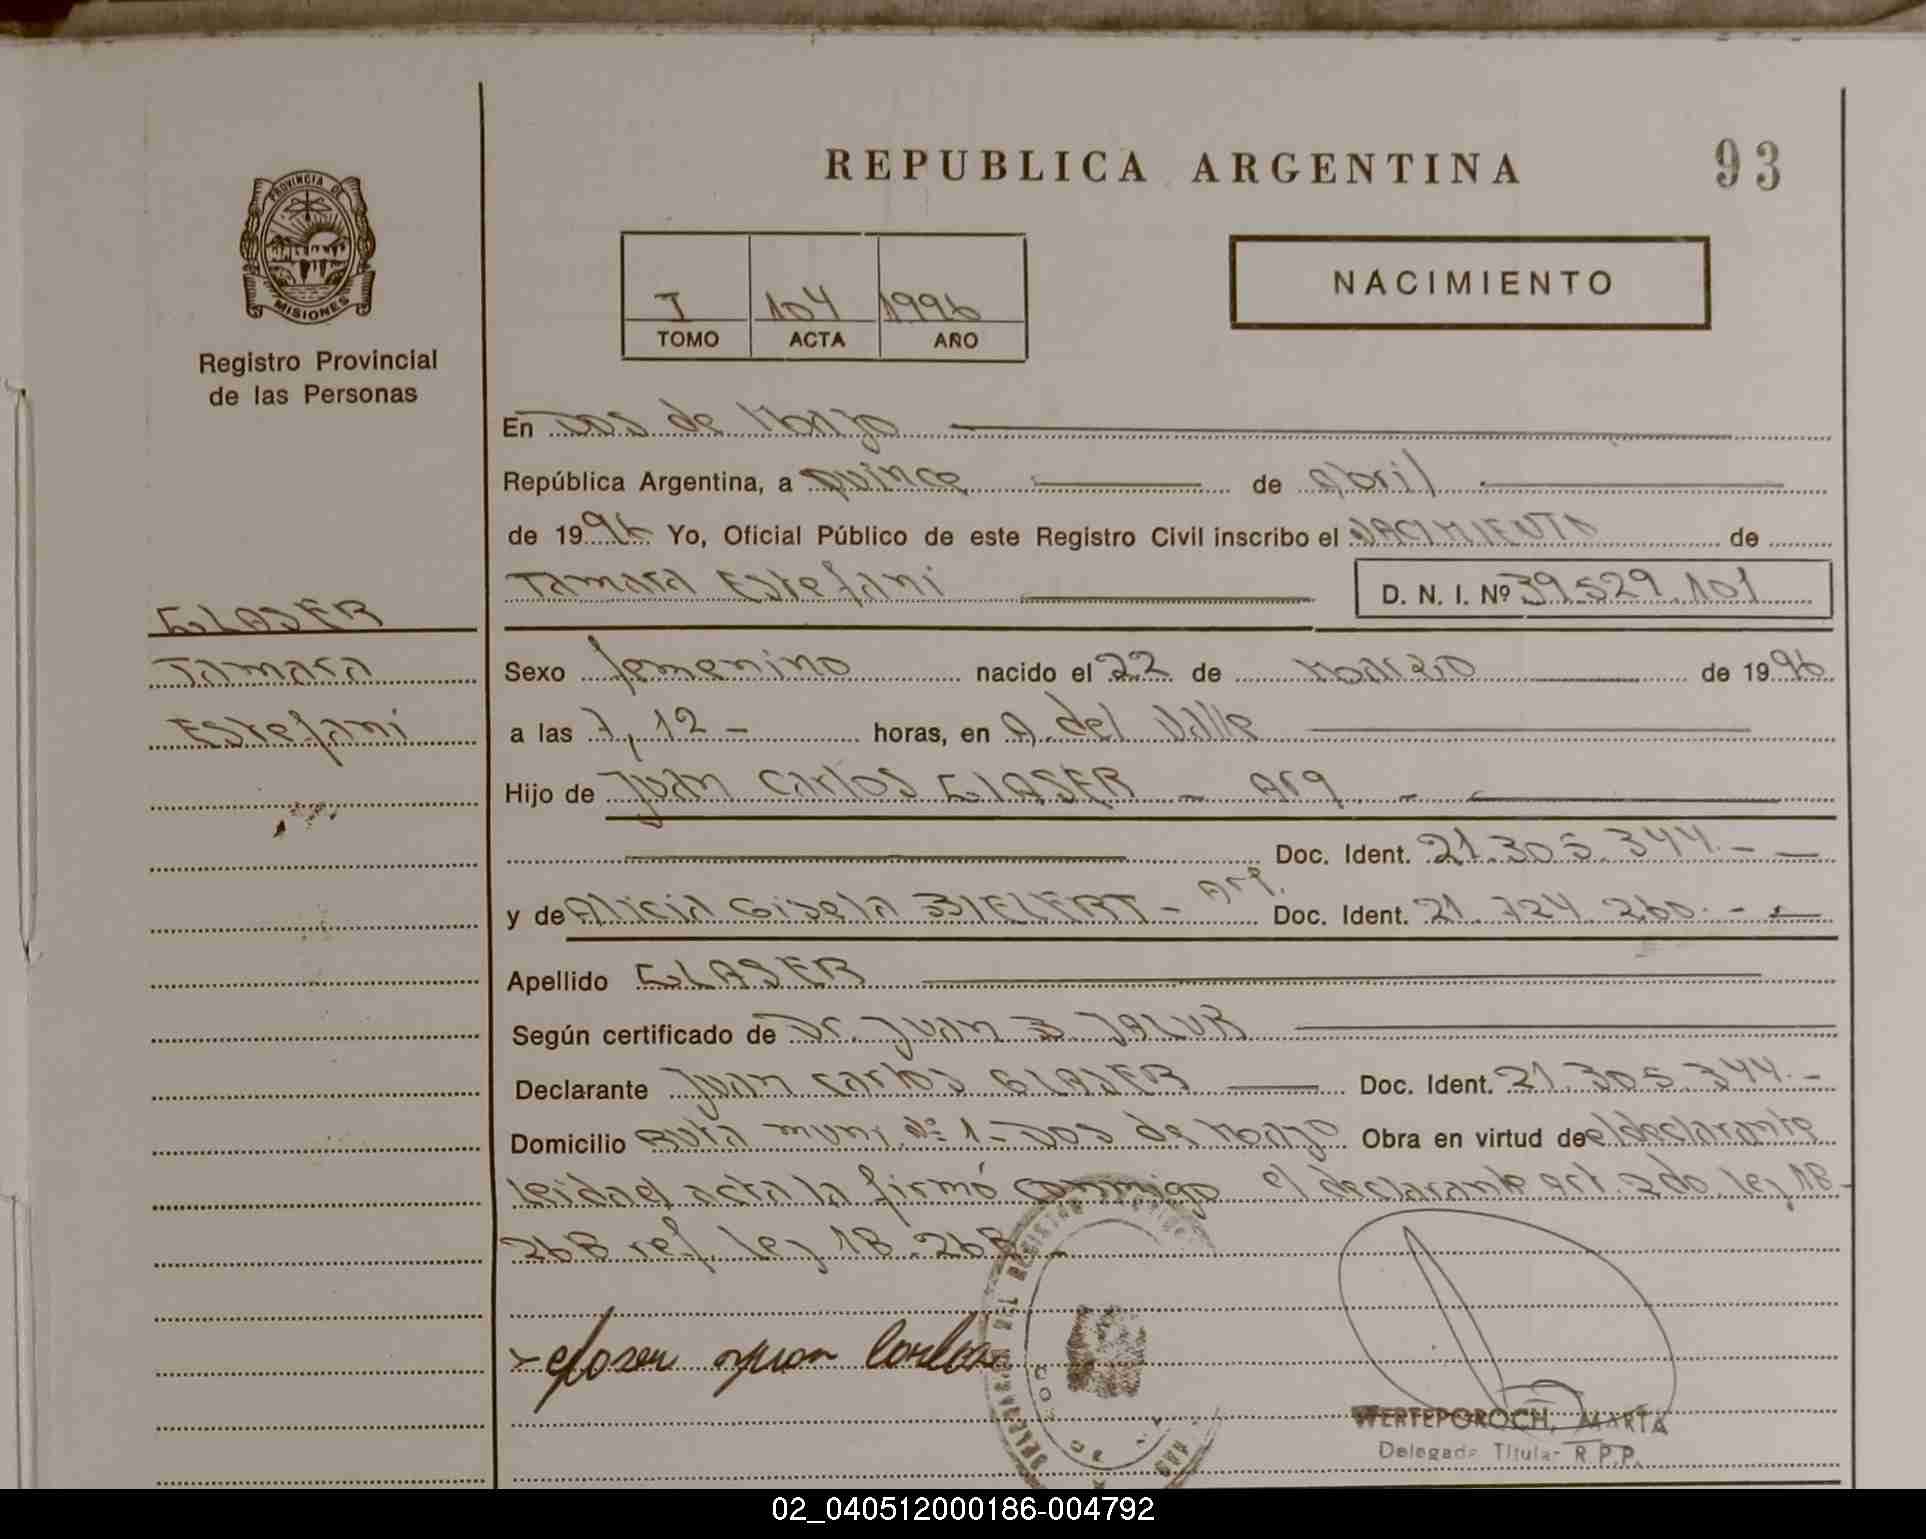 REPUBLICA ARGENTINA
93
PROVINCIA DE
MISIONES
Registro Provincial
de las Personas
I 104 1996
TOMO ACTA AÑO
NACIMIENTO
En Dos de Marzo
República Argentina, a quince de abril
de 1996 Yo, Oficial Público de este Registro Civil inscribo el NACIMIENTO de
Tamara Estefani D. N. I. Nº 39.529.101
GLASER
Tamara
Estefani
Sexo femenino nacido el 22 de marzo de 1996
a las 7,12 - horas, en A. del Valle
Hijo de Juan Carlos GLASER - Arg -
Doc. Ident. 21.305.344 - -
y de Alicia Gisela - Arg. Doc. Ident. 21.724.260 - -
Apellido GLASER
Según certificado de Dr. Juan B JALUR
Declarante Juan Carlos GLASER Doc. Ident. 21.305.344 -
Domicilio Ruta muni. Nº 1 - Dos de Marzo Obra en virtud de el declarante
leida el acta la firmó conmigo el declarante art. 2do ley 18-
268 ref. ley 18.268 -
Glaser Juan Carlos
DELEGACION DEL REGISTRO
WERTEPOROCH, MARTA
Delegada Titular R.P.P.
02_040512000186-004792